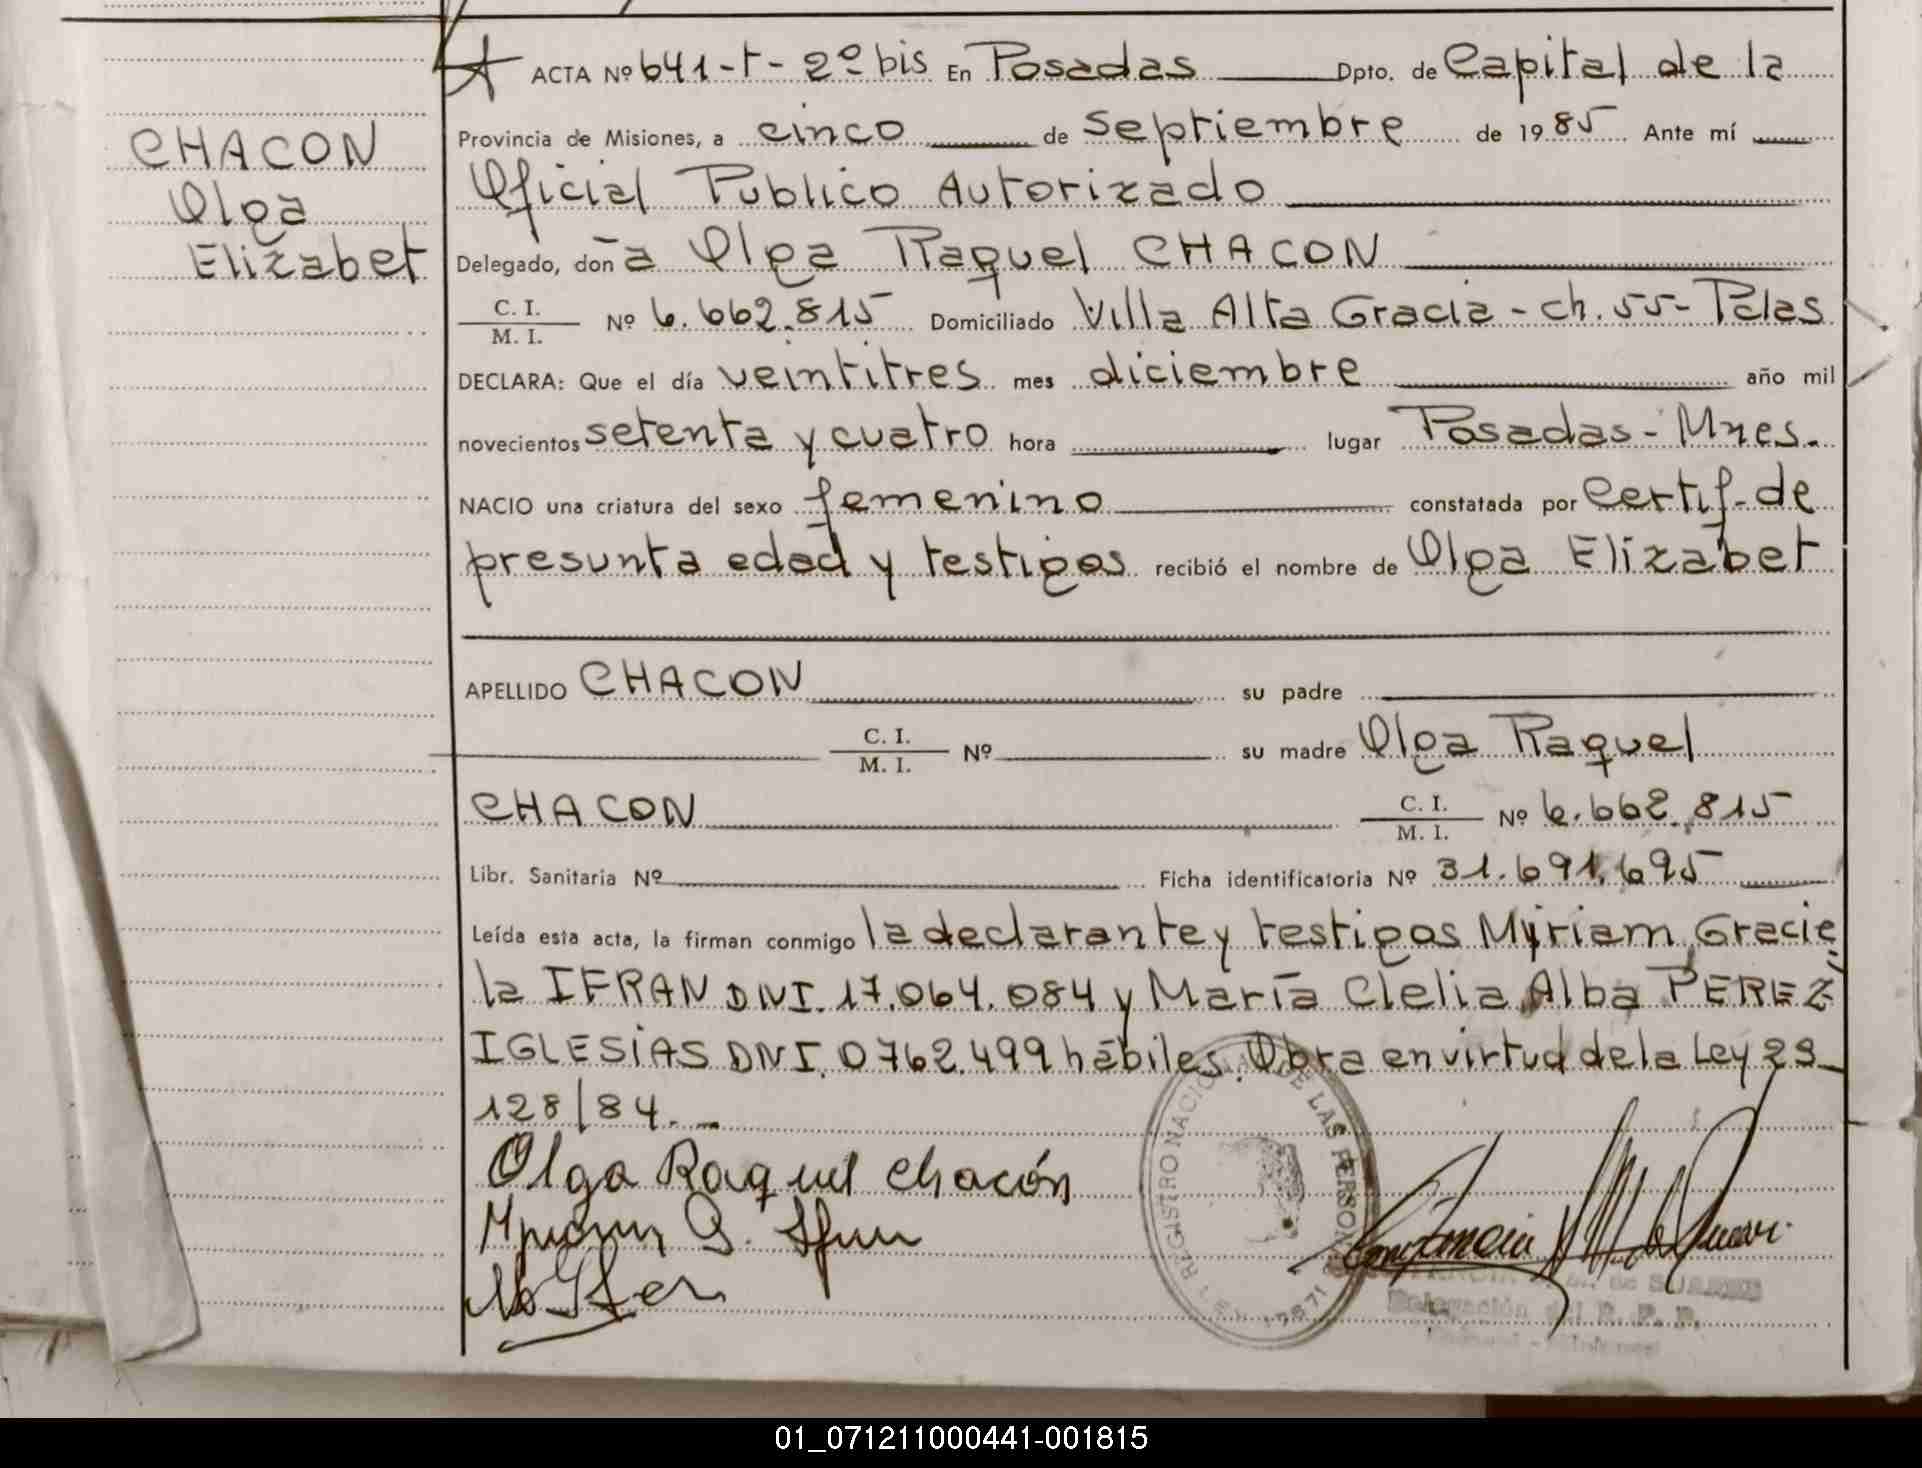 CHACON
Olga
Elizabet
ACTA Nº 641-t-2º bis En Posadas Dpto. de Capital de la
Provincia de Misiones, a cinco de septiembre de 1985 Ante mí
Oficial Publico Autorizado
Delegado, doña Olga Raquel CHACON
C. I. / M. I. Nº 6.662.815 Domiciliado Villa Alta Gracia - ch. 55- Pdas
DECLARA: Que el día veintitres mes diciembre año mil
novecientos setenta y cuatro hora lugar Posadas - Mnes.
NACIO una criatura del sexo femenino constatada por Certif. de
presunta edad y testigos recibió el nombre de Olga Elizabet
APELLIDO CHACON su padre
C. I. / M. I. Nº su madre Olga Raquel
CHACON C. I. / M. I. Nº 6.662.815
Libr. Sanitaria Nº Ficha identificatoria Nº 31.691.695
Leída esta acta, la firman conmigo la declarante y testigos Myriam Gracie
la IFRAN DNI. 17.064.084 y María Clelia Alba PEREZ
IGLESIAS DNI. 0762.499 hábiles. Obra en virtud de la Ley 23
128/84.
Olga Raquel Chacón
REGISTRO NACIONAL DE LAS PERSONAS
LEY 17671
de SUAREZ
Delegación del R. P. P.
01_071211000441-001815